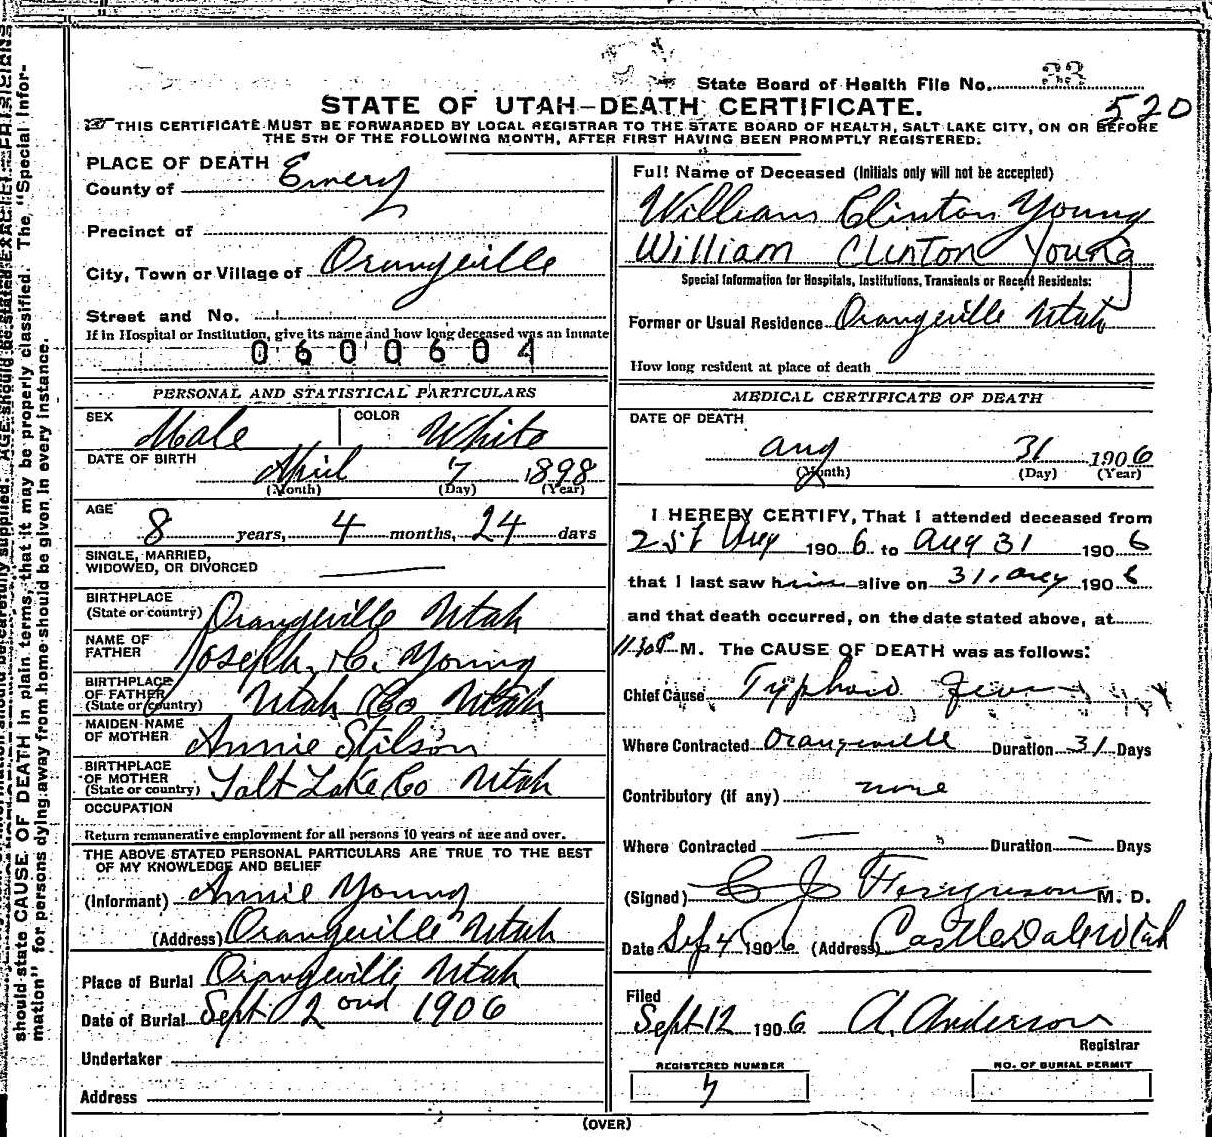 State Board of Health File No. 33
520
STATE OF UTAH—DEATH CERTIFICATE.
THIS CERTIFICATE MUST BE FORWARDED BY LOCAL REGISTRAR TO THE STATE BOARD OF HEALTH, SALT LAKE CITY, ON OR BEFORE
THE 5TH OF THE FOLLOWING MONTH, AFTER FIRST HAVING BEEN PROMPTLY REGISTERED.
PLACE OF DEATH
County of Emery
Precinct of
City, Town or Village of Orangeville
Street and No.
If in Hospital or Institution, give its name and how long deceased was an inmate
0600604
PERSONAL AND STATISTICAL PARTICULARS
SEX Male COLOR White
DATE OF BIRTH April 7 1898
(Month) (Day) (Year)
AGE 8 years, 4 months, 24 days
SINGLE, MARRIED,
WIDOWED, OR DIVORCED
BIRTHPLACE
(State or country) Orangeville Utah
NAME OF
FATHER Joseph. H. Young
BIRTHPLACE
OF FATHER
(State or country) Utah Co Utah
MAIDEN NAME
OF MOTHER Annie Stilson
BIRTHPLACE
OF MOTHER
(State or country) Salt Lake Co Utah
OCCUPATION
Return remunerative employment for all persons 10 years of age and over.
THE ABOVE STATED PERSONAL PARTICULARS ARE TRUE TO THE BEST
OF MY KNOWLEDGE AND BELIEF
(Informant) Annie Young
(Address) Orangeville Utah
Place of Burial Orangeville Utah
Date of Burial Sept 2 ond 1906
Undertaker
Address
Full Name of Deceased (Initials only will not be accepted)
William Clinton Young
William Clinton Young
Special Information for Hospitals, Institutions, Transients or Recent Residents:
Former or Usual Residence Orangeville Utah
How long resident at place of death
MEDICAL CERTIFICATE OF DEATH
DATE OF DEATH
Aug 31 1906
(Month) (Day) (Year)
I HEREBY CERTIFY, That I attended deceased from
Aug 1906 to Aug 31 1906
that I last saw him alive on 31. Aug 1906
and that death occurred, on the date stated above, at
11.30P M. The CAUSE OF DEATH was as follows:
Chief Cause Typhoid Fever
Where Contracted Orangeville Duration 31 Days
Contributory (if any) none
Where Contracted — Duration — Days
(Signed) C J Ferguson M. D.
Date Sep 4 1906 (Address) Castle Dale Utah
Filed
Sept 12 1906 A. Anderson
Registrar
REGISTERED NUMBER
NO. OF BURIAL PERMIT
(OVER)
should state CAUSE OF DEATH in plain terms, that it may be properly classified. The "Special Infor-
mation" for persons dying away from home should be given in every instance.